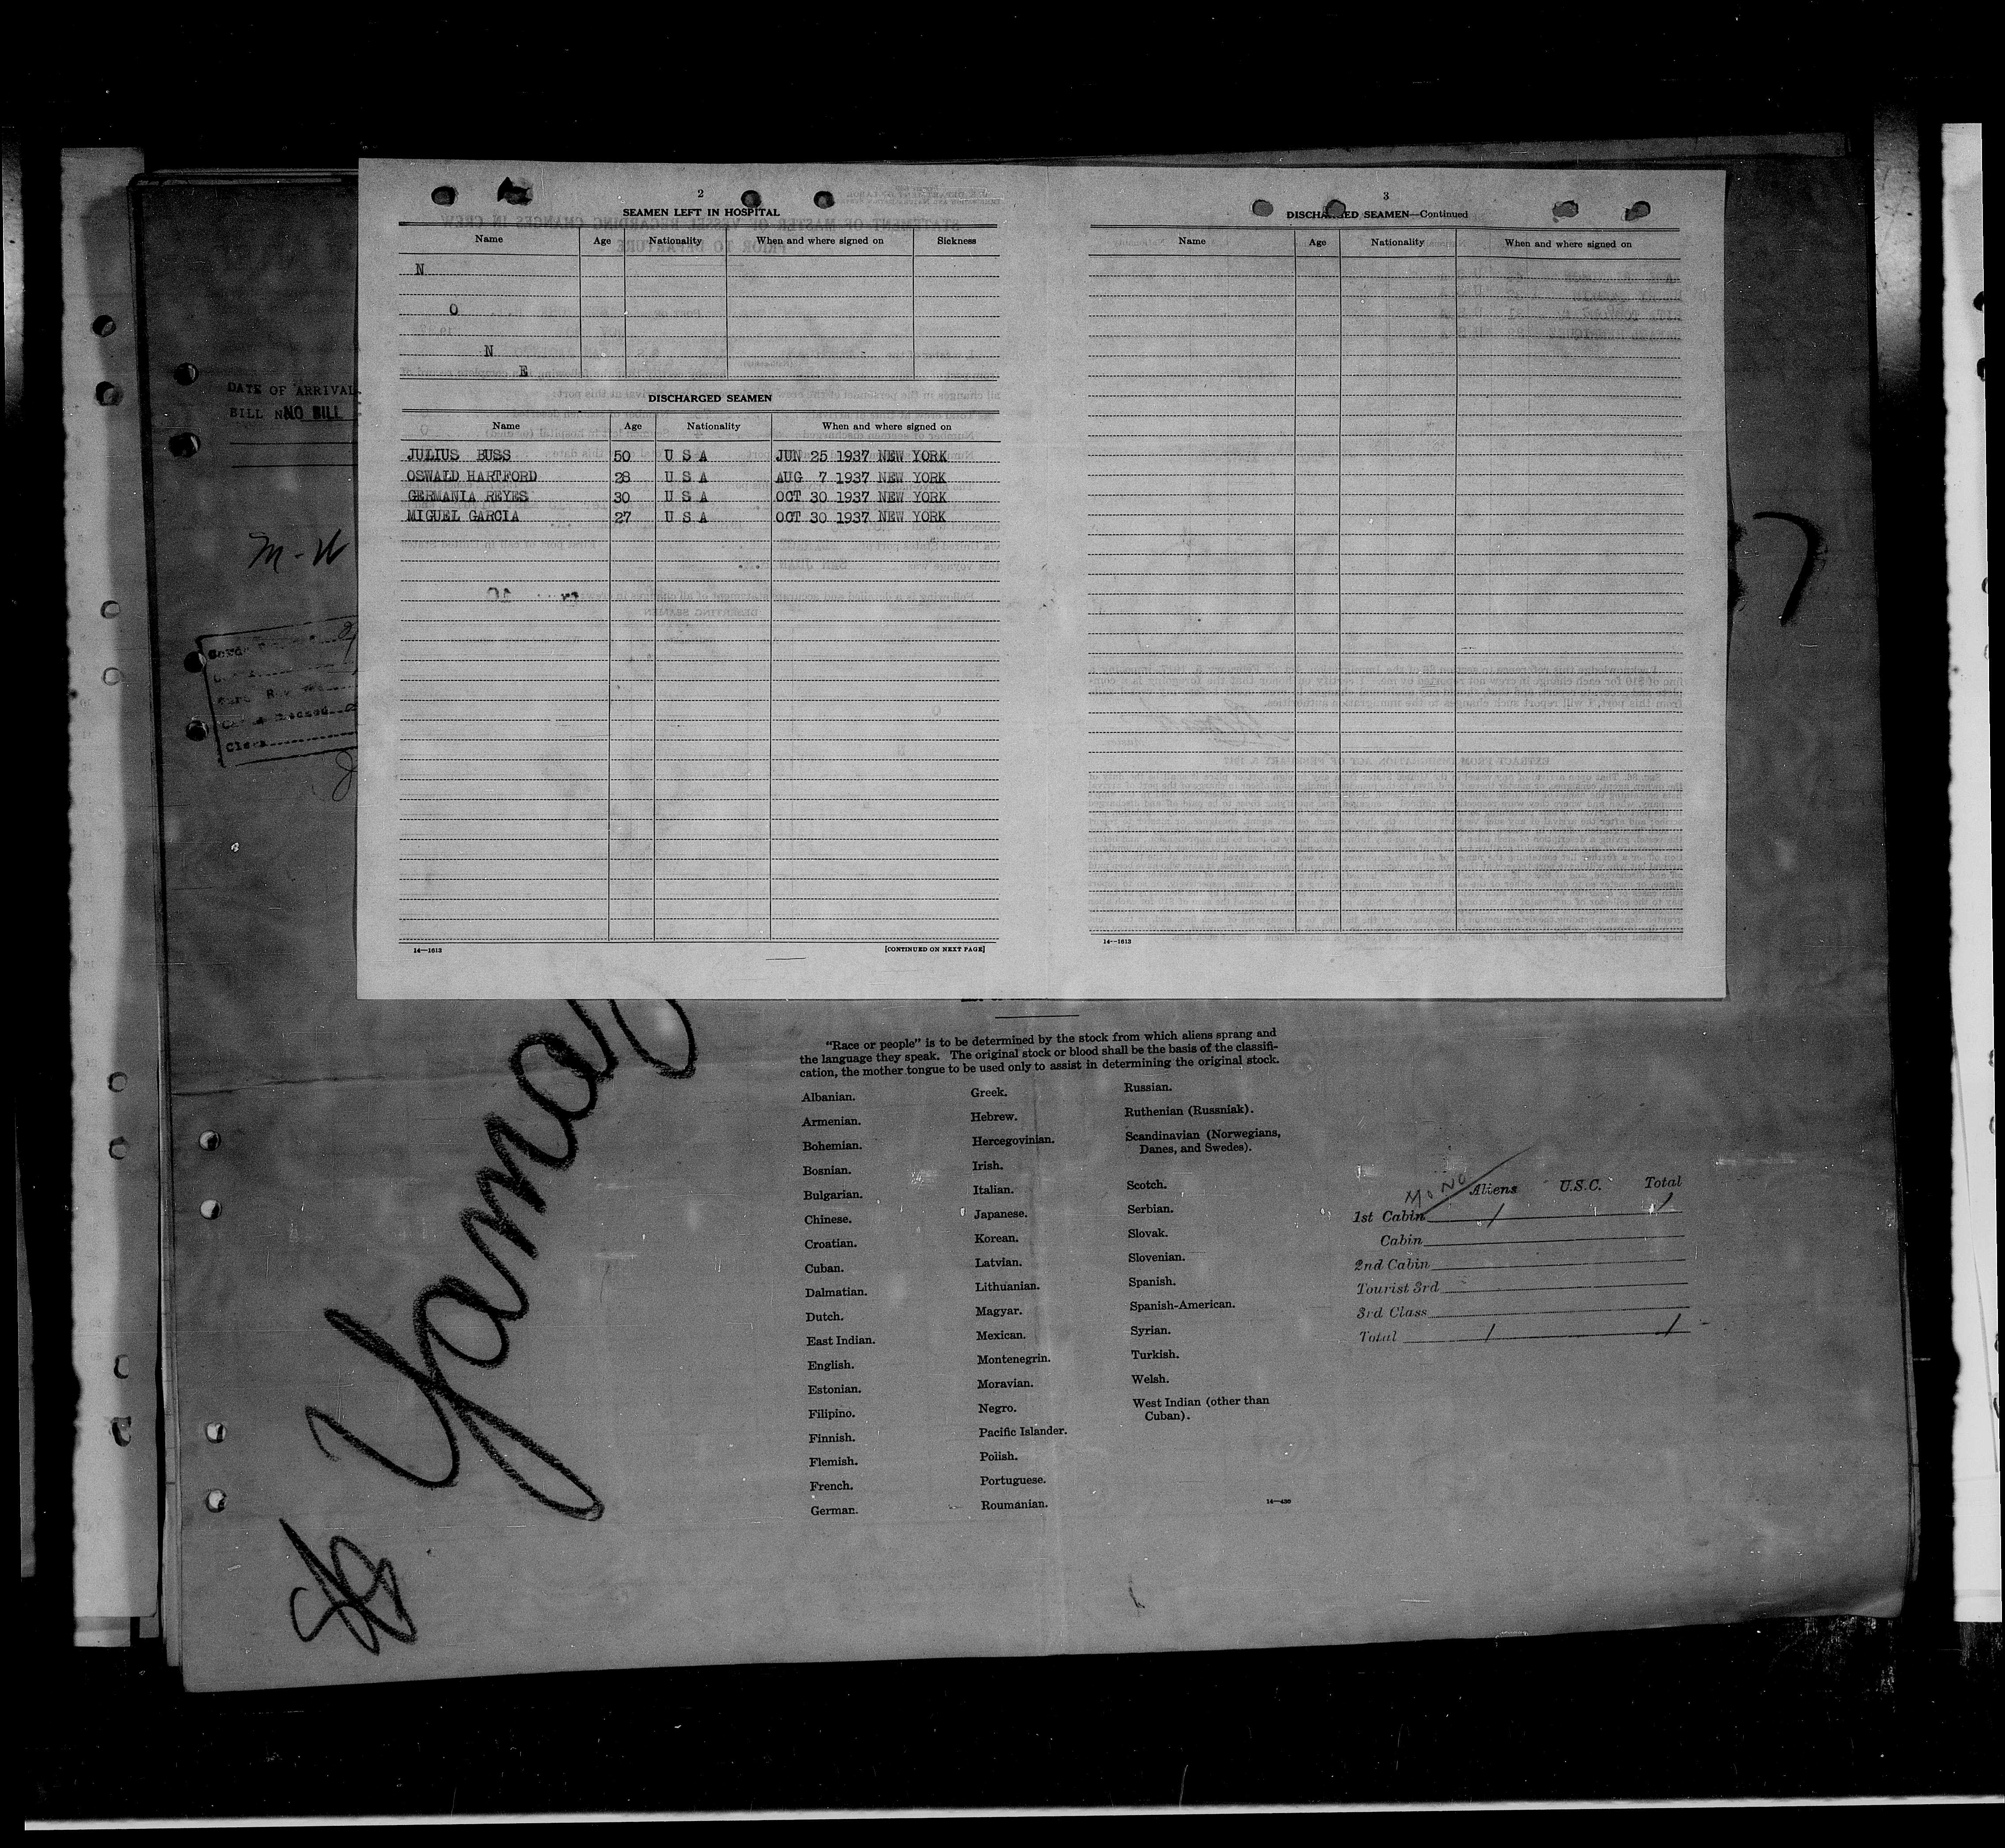 2
SEAMEN LEFT IN HOSPITAL
Name Age Nationality When and where signed on Sickness
N
O
N
E
DISCHARGED SEAMEN
Name Age Nationality When and where signed on
JULIUS BUSS 50 U S A JUN 25 1937 NEW YORK
OSWALD HARTFORD 28 U S A AUG 7 1937 NEW YORK
GERMANIA REYES 30 U S A OCT 30 1937 NEW YORK
MIGUEL GARCIA 27 U S A OCT 30 1937 NEW YORK
14—1613 [CONTINUED ON NEXT PAGE]
3
DISCHARGED SEAMEN—Continued
Name Age Nationality When and where signed on
14—1613
DATE OF ARRIVAL
BILL NO NO BILL
Clerk
7
"Race or people" is to be determined by the stock from which aliens sprang and
the language they speak. The original stock or blood shall be the basis of the classifi-
cation, the mother tongue to be used only to assist in determining the original stock.
Albanian.
Armenian.
Bohemian.
Bosnian.
Bulgarian.
Chinese.
Croatian.
Cuban.
Dalmatian.
Dutch.
East Indian.
English.
Estonian.
Filipino.
Finnish.
Flemish.
French.
German.
Greek.
Hebrew.
Hercegovinian.
Irish.
Italian.
Japanese.
Korean.
Latvian.
Lithuanian.
Magyar.
Mexican.
Montenegrin.
Moravian.
Negro.
Pacific Islander.
Polish.
Portuguese.
Roumanian.
Russian.
Ruthenian (Russniak).
Scandinavian (Norwegians,
Danes, and Swedes).
Scotch.
Serbian.
Slovak.
Slovenian.
Spanish.
Spanish-American.
Syrian.
Turkish.
Welsh.
West Indian (other than
Cuban).
14—430
Aliens U.S.C. Total
1st Cabin 1 1
Cabin
2nd Cabin
Tourist 3rd
3rd Class
Total 1 1